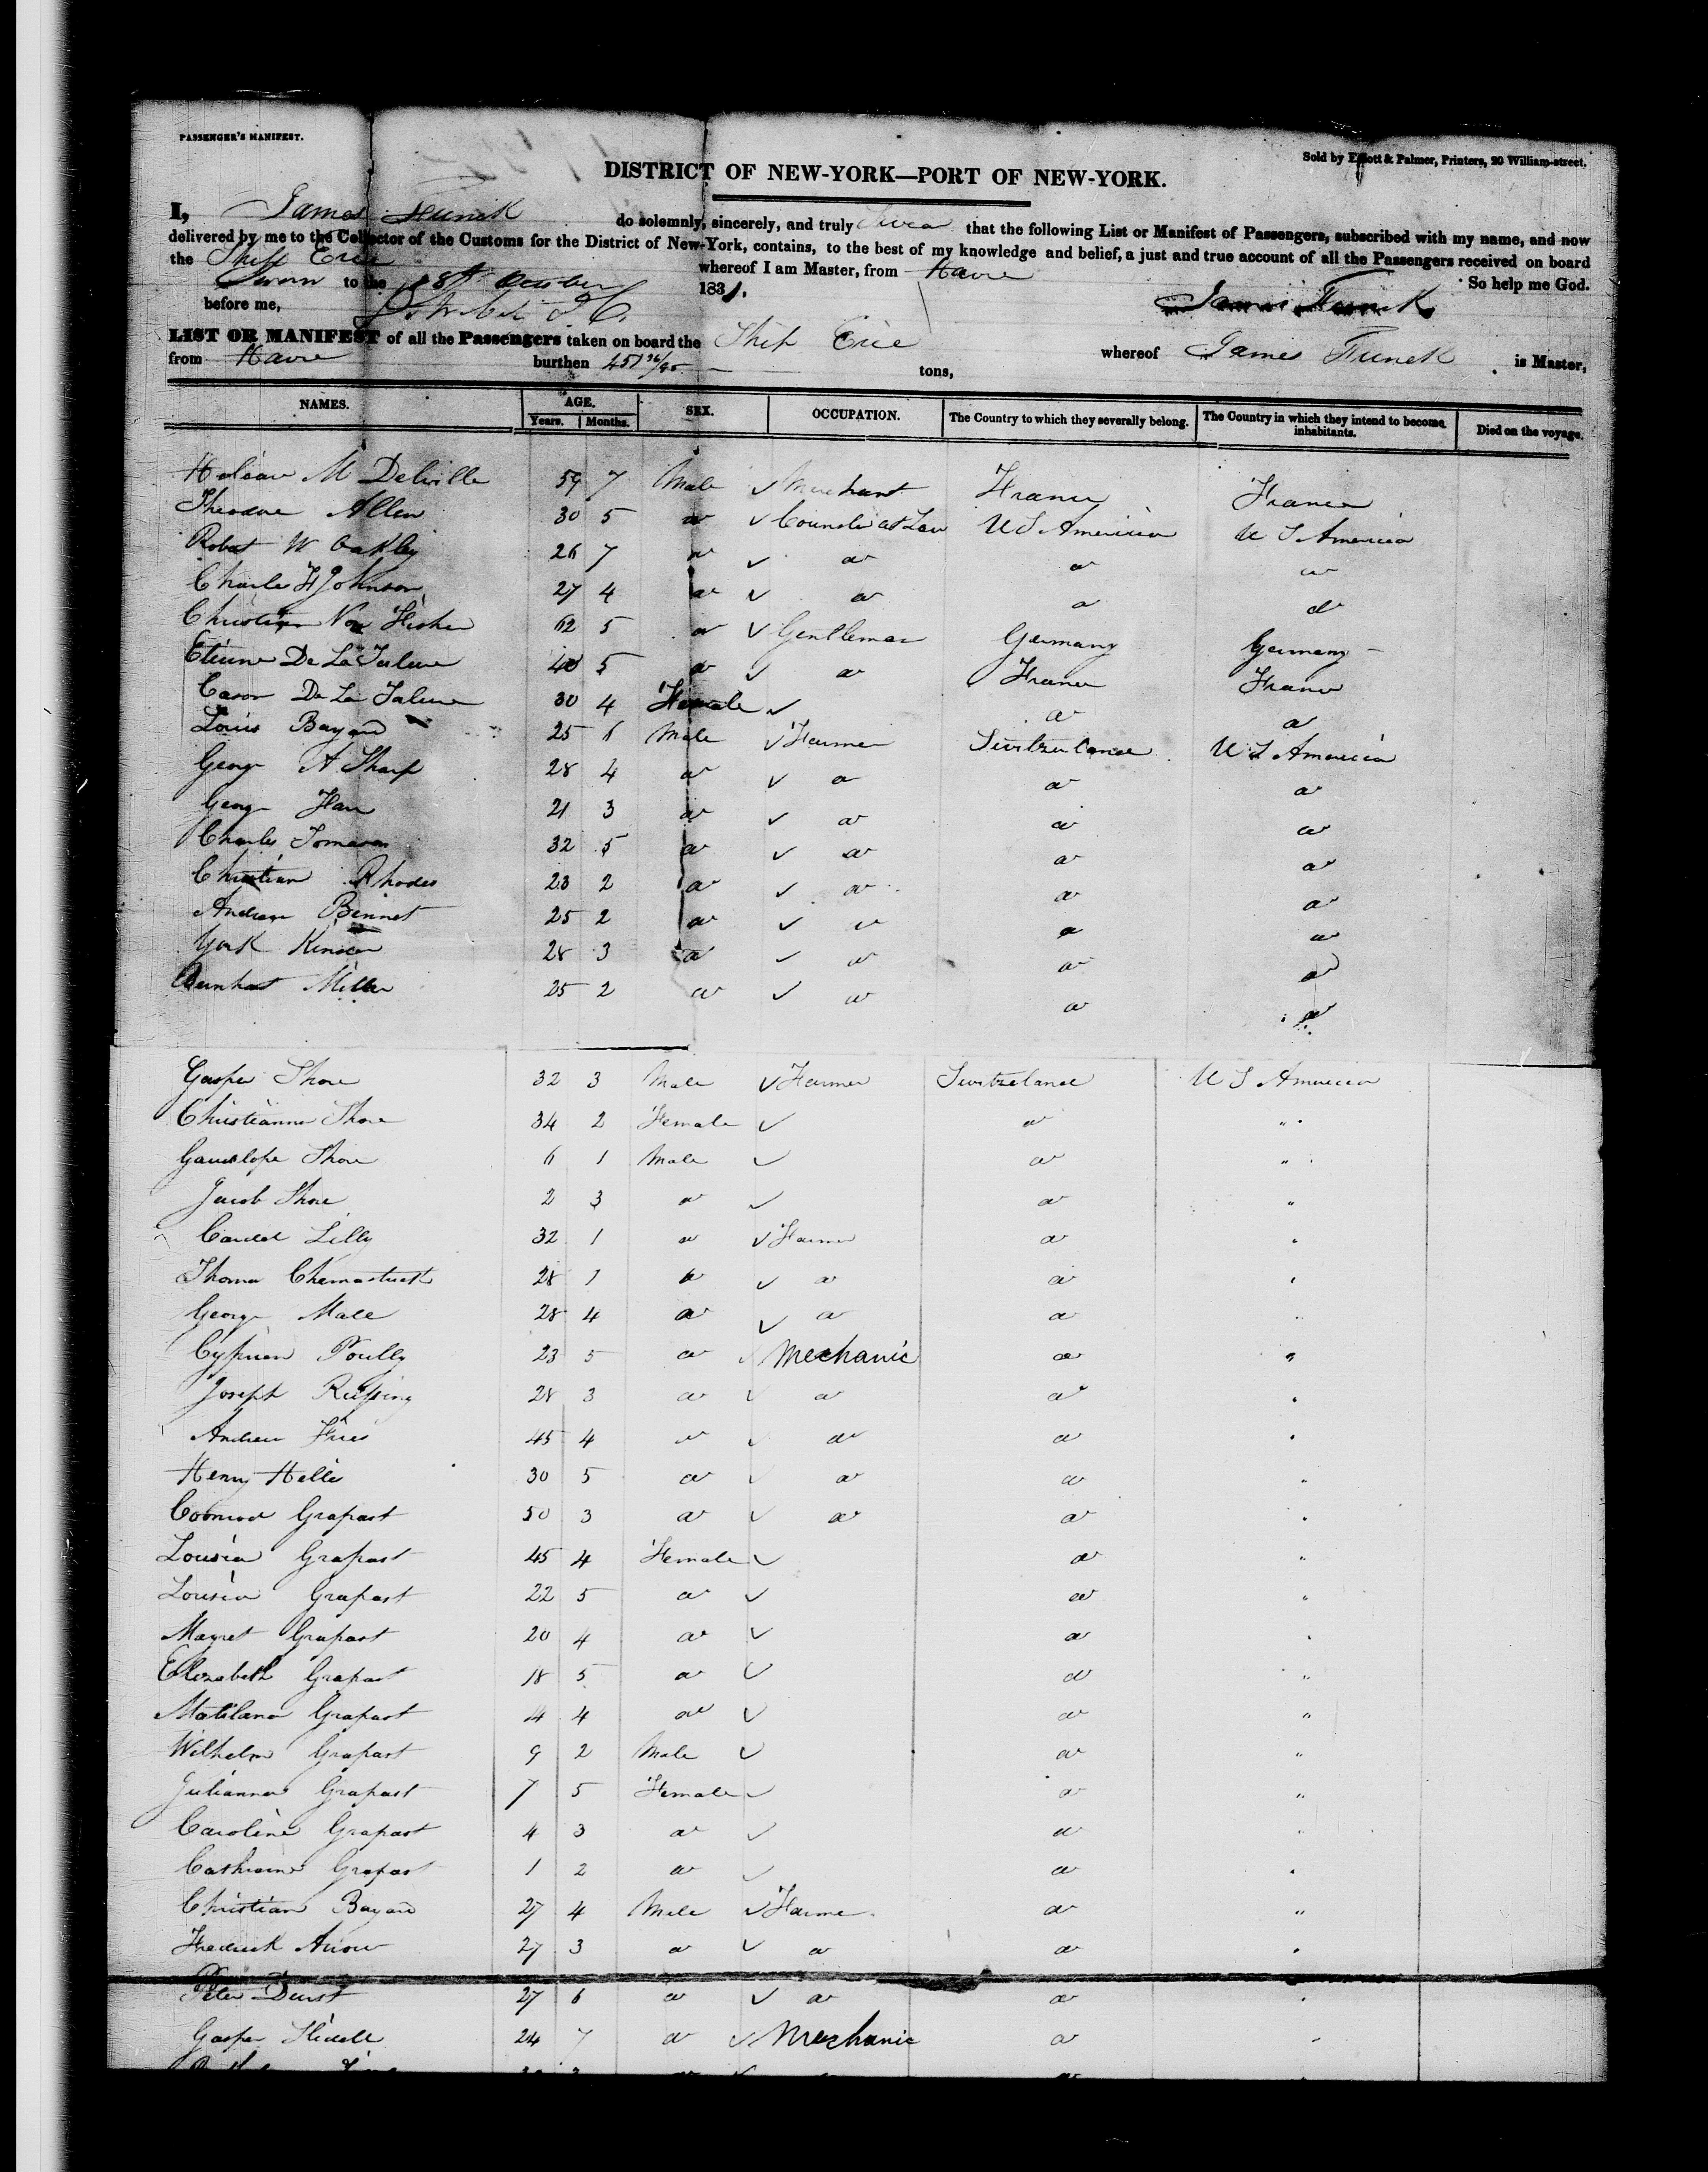 PASSENGER'S MANIFEST.
Sold by Elliott & Palmer, Printers, 20 William-street.
DISTRICT OF NEW-YORK—PORT OF NEW-YORK.
I, James Funck do solemnly, sincerely, and truly swear that the following List or Manifest of Passengers, subscribed with my name, and now
delivered by me to the Collector of the Customs for the District of New-York, contains, to the best of my knowledge and belief, a just and true account of all the Passengers received on board
the Ship Erie whereof I am Master, from Havre
Sworn to the 8th October 1831. So help me God.
before me, James Funck
LIST OR MANIFEST of all the Passengers taken on board the Ship Erie whereof James Funck is Master,
from Havre burthen 451 tons,
NAMES. AGE. SEX. OCCUPATION. The Country to which they severally belong. The Country in which they intend to become inhabitants. Died on the voyage.
Years. Months.
M Delville 59 7 Male Merchant France France
Theodore Allen 30 5 do Counsler at Law U S America U S America
Robert W Oakley 26 7 do do do do
Charles H Johnson 27 4 do do do do
Christian Von Fisher 62 5 do Gentleman Germany Germany
Etienne De La 40 5 do do France France
De La 30 4 Female do do
Louis Bayard 25 6 Male Farmer Switzerland U S America
George A Sharp 28 4 do do do do
George 21 3 do do do do
Charles 32 5 do do do do
Christian Rhodes 23 2 do do do do
Andrew Binnet 25 2 do do do do
York 28 3 do do do do
Bernhart Miller 25 2 do do do do
Gasper Shore 32 3 Male Farmer Switzeland U S America
Christianna Shore 34 2 Female do "
Shore 6 1 Male do "
Jacob Shore 2 3 do do "
Lilly 32 1 do Farmer do "
Thomas 28 1 do do do "
George Male 28 4 do do do "
Cyprien Poully 23 5 do Mechanic do "
Joseph 28 3 do do do "
Andrew Fries 45 4 do do do "
Henry 30 5 do do do "
Conrad Grapast 50 3 do do do "
Louisia Grapast 45 4 Female do "
Louisia Grapast 22 5 do do "
Magret Grapast 20 4 do do "
Elizabeth Grapast 18 5 do do "
Grapast 14 4 do do "
Wilhelm Grapast 9 2 Male do "
Julianna Grapast 7 5 Female do "
Caroline Grapast 4 3 do do "
Cathrine Grapast 1 2 do do "
Christian Bayard 27 4 Male Farmer do "
Fredrick 27 3 do do do "
Peter Durst 27 6 do do do "
Gasper 24 7 do Mechanic do "